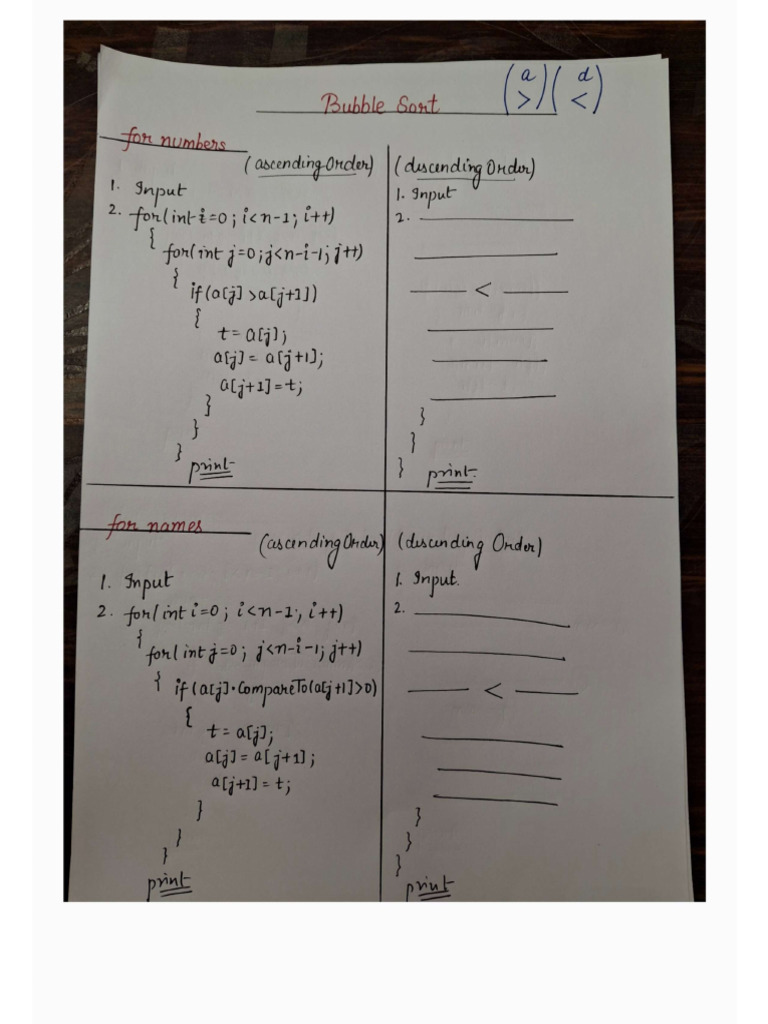 Bubble Sort
(a >) (d <)
for numbers
(ascending Order)
1. Input
2. for(int i=0; i<n-1; i++)
{
for(int j=0; j<n-i-1; j++)
{
if(a[j] >a[j+1])
{
t=a[j];
a[j]= a[j+1];
a[j+1]=t;
}
}
}
print
(descending Order)
1. Input
2.
<
}
}
}
print.
for names
(ascending Order)
1. Input
2. for(int i=0; i<n-1; i++)
{
for(int j=0; j<n-i-1; j++)
{
if(a[j].CompareTo(a[j+1]>0)
{
t= a[j];
a[j]= a[j+1];
a[j+1]= t;
}
}
}
print
(descending Order)
1. Input.
2.
<
}
}
}
print